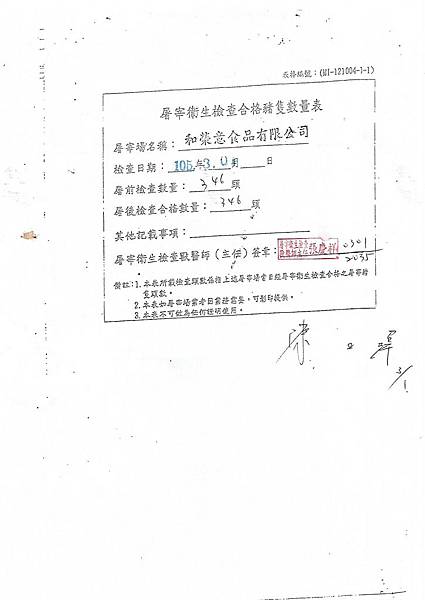 表格編號：(MI-121004-1-1)
屠宰衛生檢查合格豬隻數量表
屠宰場名稱：和榮意食品有限公司
檢查日期：105年3.0月 日
屠前檢查數量：346頭
屠後檢查合格數量：346頭
其他記載事項：
屠宰衛生檢查獸醫師（主任）簽章：張慶祥 0301
2035
備註：1.本表所載檢查頭數係指上述屠宰場當日經屠宰衛生檢查合格之屠宰豬
隻頭數。
2.本表如屠宰場業者因業務需要，可影印提供。
3.本表不可做為任何證明使用。
陳
3/1